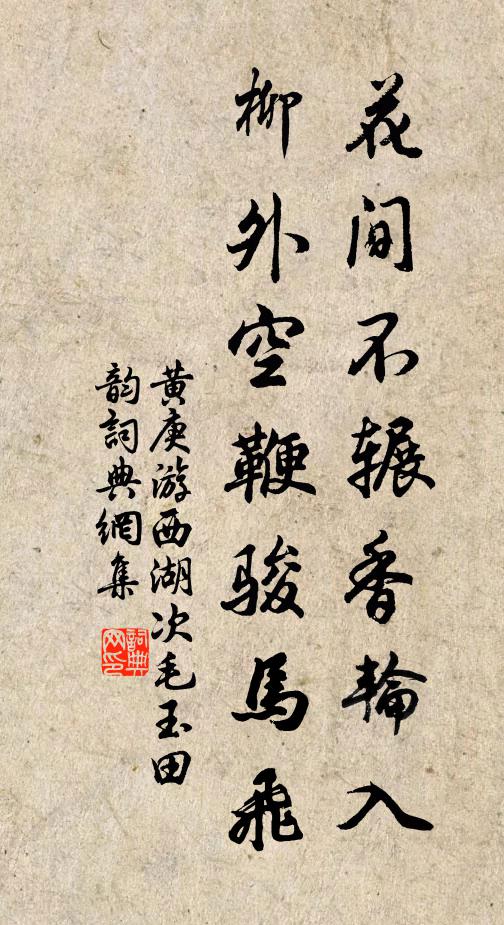 花间不辗香輪入
柳外空鞭骏馬飛
黄庚游西湖次毛玉田
韵詞典網集
詞典
网印